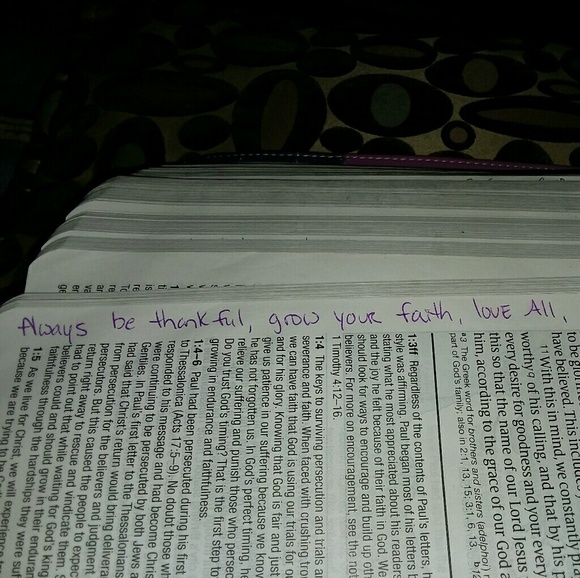 Always be thankful, grow your faith, love All,
to be
have believed. This includ
11 With this in mind, we constantly p
worthy of his calling, and that by his p
every desire for goodness and your every
this so that the name of our Lord Jesus
him, according to the grace of our God
a3 The Greek word for brothers and sisters (adelphoi)
part of God's family; also in 2:1, 13, 15; 3:1, 6, 13.
1:3ff Regardless of the contents of Paul's letters,
style was affirming. Paul began most of his letters b
stating what he most appreciated about his reader
and the joy he felt because of their faith in God. We
should look for ways to encourage and build up oth
believers. For more on encouragement, see the not
1 Timothy 4:12-16
1:4 The keys to surviving persecution and trials a
severance and faith. When faced with crushing tro
we can have faith that God is using our trials for o
and for his glory. Knowing that God is fair and just
give us patience in our suffering because we know
he has not forgotten us. In God's perfect timing, he
relieve our suffering and punish those who persec
Do you trust God's timing? That is the first step to
growing in endurance and faithfulness.
1:4-6 Paul had been persecuted during his first
to Thessalonica (Acts 17:5-9). No doubt those wh
responded to his message and had become Chris
were continuing to be persecuted by both Jews a
Gentiles. In Paul's first letter to the Thessalonians
had said that Christ's return would bring delivera
from persecution for the believers and judgment
persecutors. But this caused the people to expec
return right away to rescue and vindicate them. S
had to point out that while waiting for God's king
believers could and should grow in their enduran
faithfulness through the hardships they were suf
1:5 As we live for Christ, we will experience
because we are trying to be